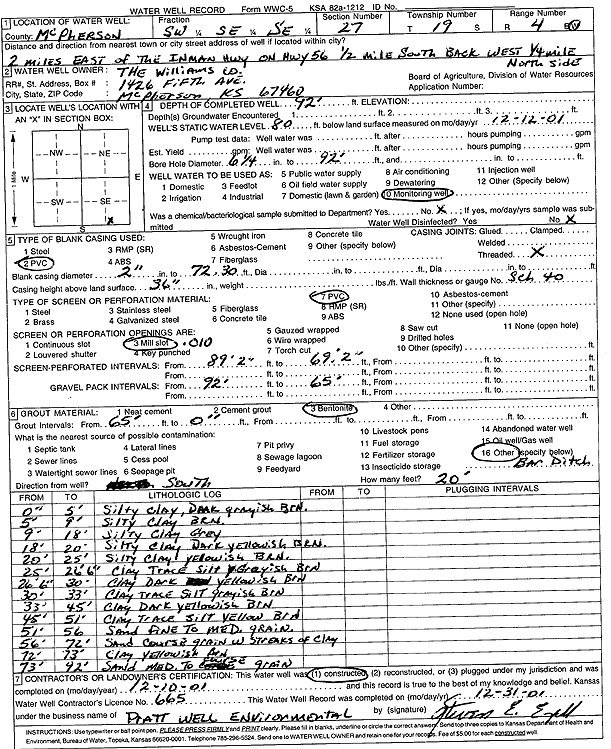 WATER WELL RECORD Form WWC-5 KSA 82a-1212 ID No.
1 LOCATION OF WATER WELL: Fraction Section Number Township Number Range Number
County: McPherson SW ¼ SE ¼ SE ¼ 27 T 19 S R 4 E W
Distance and direction from nearest town or city street address of well if located within city?
2 miles EAST of THE INMAN HWY ON HWY 56 1/2 mile South BACK WEST 1/4 mile
North side
2 WATER WELL OWNER: THE Williams Co.
RR#, St. Address, Box # : 1426 Fifth Ave. Board of Agriculture, Division of Water Resources
City, State, ZIP Code : McPherson KS 67460 Application Number:
3 LOCATE WELL'S LOCATION WITH AN "X" IN SECTION BOX:
N
NW NE
W E
SW SE
X
S
1 Mile
4 DEPTH OF COMPLETED WELL 92' ft. ELEVATION:
Depth(s) Groundwater Encountered 1 ft. 2 ft. 3 ft.
WELL'S STATIC WATER LEVEL 80 ft. below land surface measured on mo/day/yr 12-12-01
Pump test data: Well water was ft. after hours pumping gpm
Est. Yield gpm: Well water was ft. after hours pumping gpm
Bore Hole Diameter 6 1/4 in. to 92' ft., and in. to ft.
WELL WATER TO BE USED AS: 5 Public water supply 8 Air conditioning 11 Injection well
1 Domestic 3 Feedlot 6 Oil field water supply 9 Dewatering 12 Other (Specify below)
2 Irrigation 4 Industrial 7 Domestic (lawn & garden) 10 Monitoring well
Was a chemical/bacteriological sample submitted to Department? Yes No X ; If yes, mo/day/yrs sample was submitted
Water Well Disinfected? Yes No X
5 TYPE OF BLANK CASING USED: 5 Wrought iron 8 Concrete tile CASING JOINTS: Glued Clamped
1 Steel 3 RMP (SR) 6 Asbestos-Cement 9 Other (specify below) Welded
2 PVC 4 ABS 7 Fiberglass Threaded X
Blank casing diameter 2" in. to 72.30 ft., Dia in. to ft., Dia in. to ft.
Casing height above land surface 36" in., weight lbs./ft. Wall thickness or gauge No. Sch 40
TYPE OF SCREEN OR PERFORATION MATERIAL: 7 PVC 10 Asbestos-cement
1 Steel 3 Stainless steel 5 Fiberglass 8 RMP (SR) 11 Other (specify)
2 Brass 4 Galvanized steel 6 Concrete tile 9 ABS 12 None used (open hole)
SCREEN OR PERFORATION OPENINGS ARE: 5 Gauzed wrapped 8 Saw cut 11 None (open hole)
1 Continuous slot 3 Mill slot .010 6 Wire wrapped 9 Drilled holes
2 Louvered shutter 4 Key punched 7 Torch cut 10 Other (specify) ft.
SCREEN-PERFORATED INTERVALS: From 89' 2" ft. to 69' 2" ft., From ft. to ft.
From ft. to ft., From ft. to ft.
GRAVEL PACK INTERVALS: From 92' ft. to 65' ft., From ft. to ft.
From ft. to ft., From ft. to ft.
6 GROUT MATERIAL: 1 Neat cement 2 Cement grout 3 Bentonite 4 Other
Grout Intervals: From 65' ft. to 0" ft., From ft. to ft., From ft. to ft.
What is the nearest source of possible contamination: 10 Livestock pens 14 Abandoned water well
1 Septic tank 4 Lateral lines 7 Pit privy 11 Fuel storage 15 Oil well/Gas well
2 Sewer lines 5 Cess pool 8 Sewage lagoon 12 Fertilizer storage 16 Other (specify below)
3 Watertight sewer lines 6 Seepage pit 9 Feedyard 13 Insecticide storage Bar Ditch
Direction from well? South How many feet? 20'
FROM TO LITHOLOGIC LOG FROM TO PLUGGING INTERVALS
0" 5' Silty Clay, Dark grayish BRN.
5' 9' Silty Clay BRN.
9' 18' Silty Clay Grey
18' 20' Silty Clay Dark yellowish BRN.
20' 25' Silty Clay yellowish BRN.
25' 26'6" Clay Trace Silt Grayish Brn
26'6" 30' Clay Dark yellowish Brn
30' 33' Clay Trace Silt grayish Brn
33' 45' Clay Dark yellowish Brn
45' 51' Clay Trace Silt yellow Brn
51' 56 Sand fine to med. grain.
56' 72' Sand Course grain w streaks of clay
72' 73' Clay yellowish Brn
73' 92' Sand Med. to Course grain
7 CONTRACTOR'S OR LANDOWNER'S CERTIFICATION: This water well was (1) constructed, (2) reconstructed, or (3) plugged under my jurisdiction and was
completed on (mo/day/year) 12-10-01 and this record is true to the best of my knowledge and belief. Kansas
Water Well Contractor's Licence No. 665 This Water Well Record was completed on (mo/day/yr) 12-31-01
under the business name of Pratt Well Environmental by (signature)
INSTRUCTIONS: Use typewriter or ball point pen. PLEASE PRESS FIRMLY and PRINT clearly. Please fill in blanks, underline or circle the correct answers. Send top three copies to Kansas Department of Health and
Environment, Bureau of Water, Topeka, Kansas 66620-0001. Telephone 785-296-5524. Send one to WATER WELL OWNER and retain one for your records. Fee of $5.00 for each constructed well.